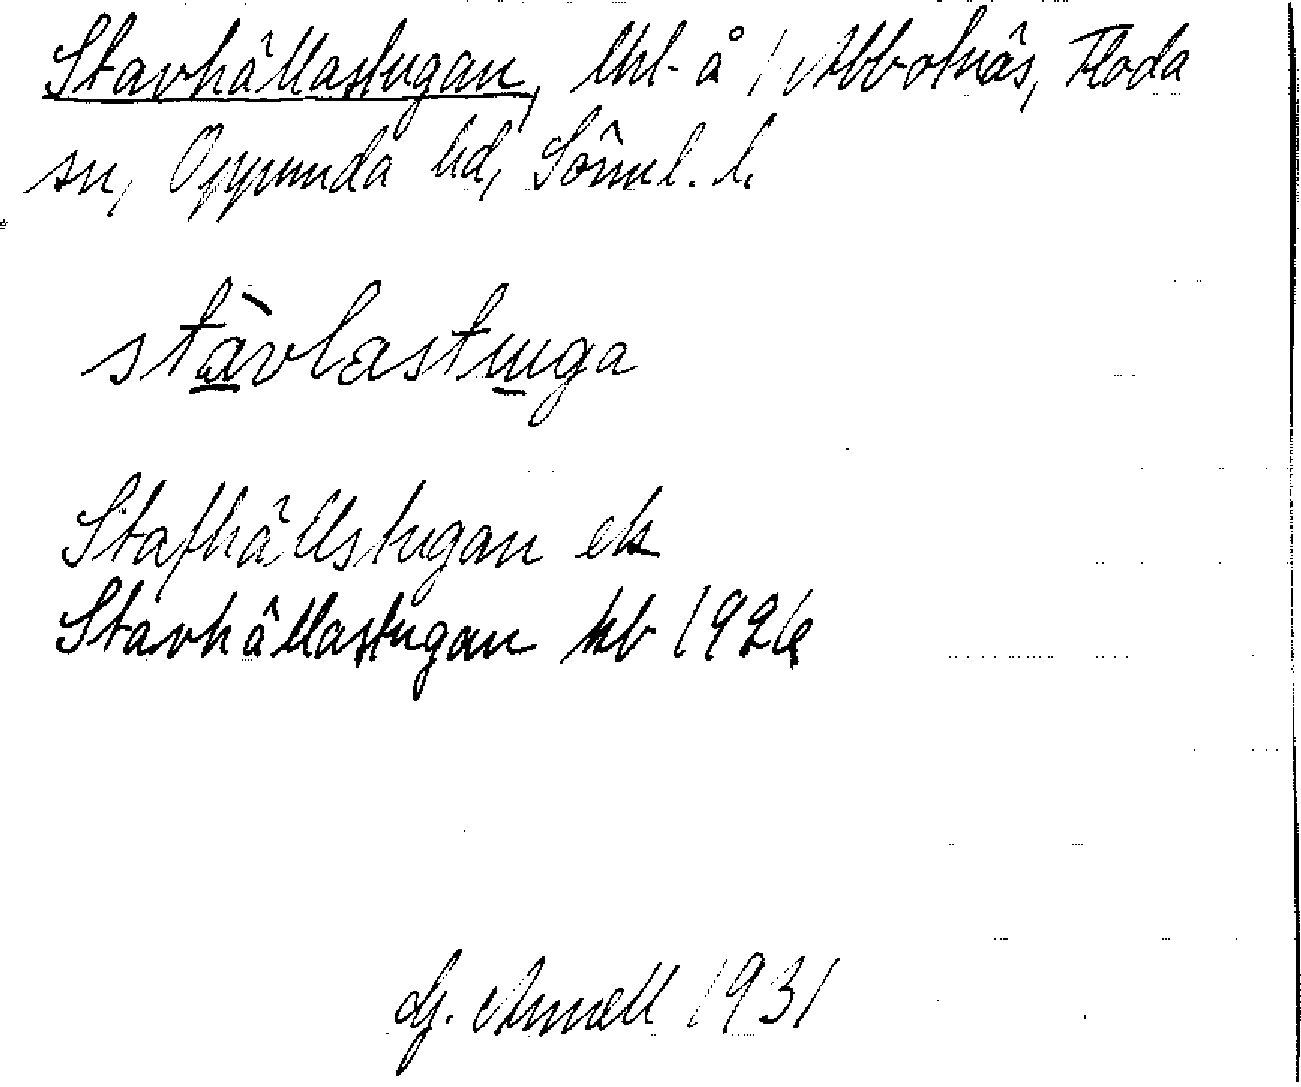 Stavhällastugan, lhl. å / Abbotnäs, Floda
sn, Oppunda hd, Söml. l.
stàvlastuga
Stafhällstugan ek
Stavhällastugan kb 1926
Gj. Arnell 1931